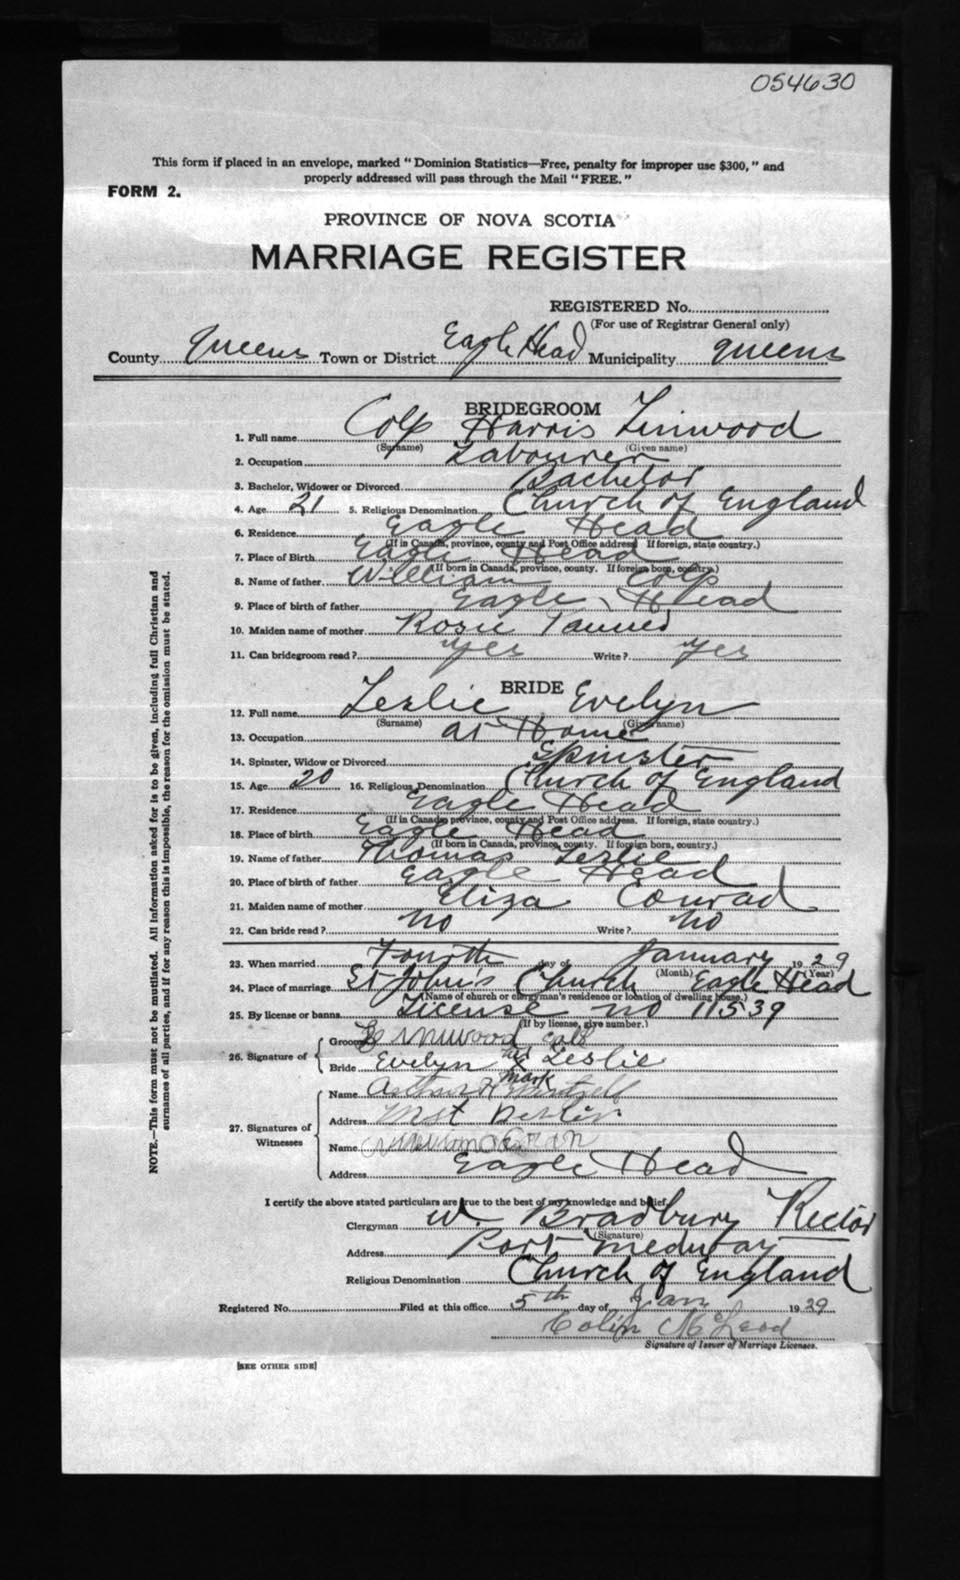 054630
This form if placed in an envelope, marked "Dominion Statistics—Free, penalty for improper use $300," and
properly addressed will pass through the Mail "FREE."
FORM 2.
PROVINCE OF NOVA SCOTIA
MARRIAGE REGISTER
REGISTERED No.
(For use of Registrar General only)
County Queens Town or District Eagle Head Municipality Queens
BRIDEGROOM
1. Full name Colp Harris Linwood
(Surname) (Given name)
2. Occupation Labourer
3. Bachelor, Widower or Divorced Bachelor
4. Age 21 5. Religious Denomination Church of England
6. Residence Eagle Head
(If in Canada, province, county and Post Office address. If foreign, state country.)
7. Place of Birth Eagle Head
(If born in Canada, province, county. If foreign born, country.)
8. Name of father William Colp
9. Place of birth of father Eagle Head
10. Maiden name of mother Rosie
11. Can bridegroom read? Yes Write? Yes
BRIDE
12. Full name Leslie Evelyn
(Surname) (Given name)
13. Occupation at Home
14. Spinster, Widow or Divorced Spinster
15. Age 20 16. Religious Denomination Church of England
17. Residence Eagle Head
(If in Canada province, county and Post Office address. If foreign, state country.)
18. Place of birth Eagle Head
(If born in Canada, province, county. If foreign born, country.)
19. Name of father Thomas Leslie
20. Place of birth of father Eagle Head
21. Maiden name of mother Eliza Conrad
22. Can bride read? No Write? No
23. When married Fourth day of January 1929
(Month) (Year)
24. Place of marriage St John's Church Eagle Head
(Name of church or clergyman's residence or location of dwelling house.)
25. By license or banns License no 11539
(If by license, give number.)
26. Signature of
Groom Linwood Colp
Bride Evelyn her X Leslie
mark
27. Signatures of Witnesses
Name Arthur
Address
Name
Address Eagle Head
I certify the above stated particulars are true to the best of my knowledge and belief.
Clergyman W. Bradbury Rector
(Signature)
Address Port Medway
Religious Denomination Church of England
Registered No. Filed at this office 5th day of Jan 1929
Colin McLeod
Signature of Issuer of Marriage Licenses.
[SEE OTHER SIDE]
NOTE.—This form must not be mutilated. All information asked for is to be given, including full Christian and
surnames of all parties, and if for any reason this is impossible, the reason for the omission must be stated.